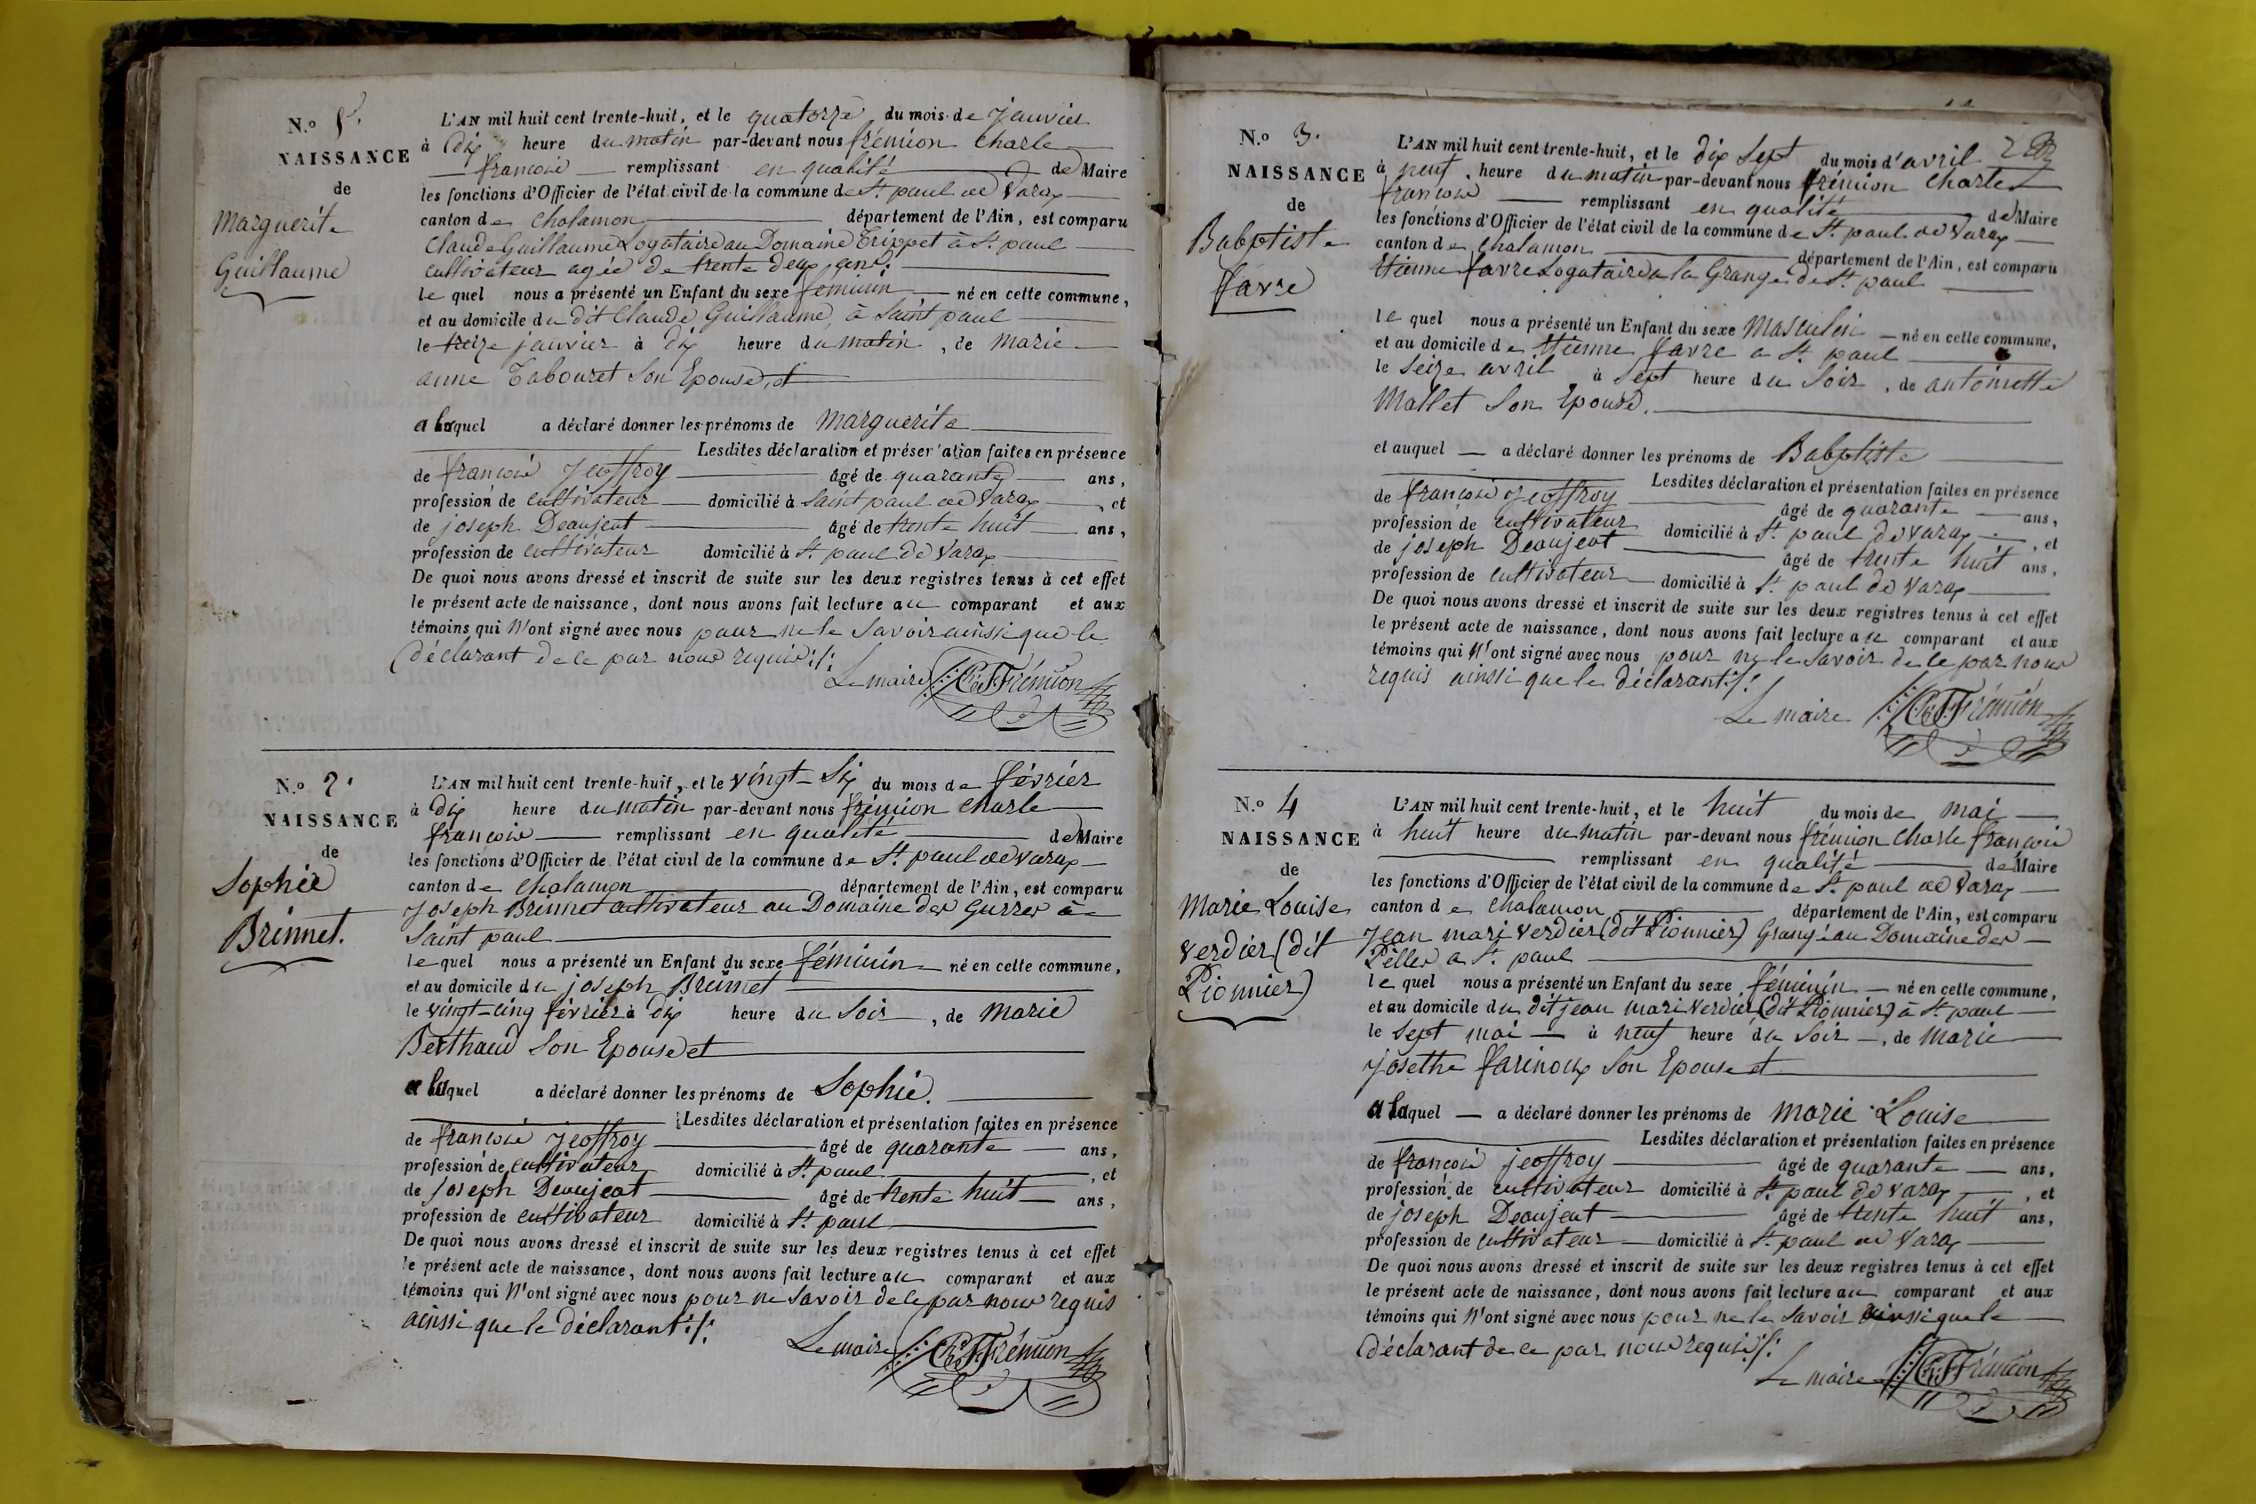 N.º 1.
NAISSANCE
de
Marguerite
Guillaume
L'AN mil huit cent trente-huit, et le quatorze du mois de janvier
à dix heure du matin par-devant nous frémion Charle
francois remplissant en qualité de Maire
les fonctions d'Officier de l'état civil de la commune de St. paul de Varax
canton de Chalamon département de l'Ain, est comparu
Claude Guillaume Logataire au Domaine Trippet à St. paul
cultivateur agée de trente deux ans.
le quel nous a présenté un Enfant du sexe feminin né en cette commune,
et au domicile du dit Claude Guillaume, à Saint paul
le treize janvier à dix heure du matin, de Marie
anne Tabouret Son Epouse, et
a laquel a déclaré donner les prénoms de Marguerite
Lesdites déclaration et présentation faites en présence
de francois Jeoffroy âgé de quarante ans,
profession de cultivateur domicilié à Saint paul de Varax, et
de joseph Deaujeat âgé de trente huit ans,
profession de cultivateur domicilié à St. paul de Varax
De quoi nous avons dressé et inscrit de suite sur les deux registres tenus à cet effet
le présent acte de naissance, dont nous avons fait lecture au comparant et aux
témoins qui N'ont signé avec nous pour ne le Savoir ainsi que le
déclarant de ce par nous requis ./.
Le maire Ch. F. Frémion
N.º 2.
NAISSANCE
de
Sophie
Brinnet.
L'AN mil huit cent trente-huit, et le vingt-Six du mois de février
à dix heure du matin par-devant nous frémion Charle
francois remplissant en qualité de Maire
les fonctions d'Officier de l'état civil de la commune de St. paul de Varax
canton de Chalamon département de l'Ain, est comparu
Joseph Brinnet cultivateur au Domaine des Gurres à
Saint paul
le quel nous a présenté un Enfant du sexe féminin né en cette commune,
et au domicile du joseph Brinnet
le vingt-cinq février à dix heure du Soir, de Marie
Berthaud Son Epouse et
a laquel a déclaré donner les prénoms de Sophie.
Lesdites déclaration et présentation faites en présence
de francois Jeoffroy âgé de quarante ans,
profession de cultivateur domicilié à St. paul, et
de Joseph Deaujeat âgé de trente huit ans,
profession de cultivateur domicilié à St. paul
De quoi nous avons dressé et inscrit de suite sur les deux registres tenus à cet effet
le présent acte de naissance, dont nous avons fait lecture au comparant et aux
témoins qui N'ont signé avec nous pour ne Savoir de ce par nous requis
ainsi que le déclarant ./.
Le maire Ch. F. Frémion
N.º 3.
NAISSANCE
de
Babptiste
favre
L'AN mil huit cent trente-huit, et le dix Sept du mois d'avril
à neuf heure du matin par-devant nous frémion Charle
francois remplissant en qualité de Maire
les fonctions d'Officier de l'état civil de la commune de St. paul de Varax
canton de Chalamon département de l'Ain, est comparu
Etienne favre Logataire a la Grange de St. paul
le quel nous a présenté un Enfant du sexe Masculin né en cette commune,
et au domicile de Etienne favre a St. paul
le Seize avril à Sept heure du Soir, de antoinette
Mallet Son Epouse.
et auquel a déclaré donner les prénoms de Babptiste
Lesdites déclaration et présentation faites en présence
de francois Jeoffroy âgé de quarante ans,
profession de cultivateur domicilié à St. paul de Varax, et
de joseph Deaujeat âgé de trente huit ans,
profession de cultivateur domicilié à St. paul de Varax
De quoi nous avons dressé et inscrit de suite sur les deux registres tenus à cet effet
le présent acte de naissance, dont nous avons fait lecture au comparant et aux
témoins qui N'ont signé avec nous pour ne le Savoir de ce par nous
requis ainsi que le déclarant ./.
Le maire Ch. F. Frémion
N.º 4
NAISSANCE
de
Marie Louise
Verdier (dit
Pionnier)
L'AN mil huit cent trente-huit, et le huit du mois de mai
à huit heure du matin par-devant nous frémion Charle françois
remplissant en qualité de Maire
les fonctions d'Officier de l'état civil de la commune de St. paul de Varax
canton de Chalamon département de l'Ain, est comparu
Jean mari Verdier (dit Pionnier) Grangé au Domaine des
Pilles a St. paul
le quel nous a présenté un Enfant du sexe féminin né en cette commune,
et au domicile du dit jean mari Verdier (dit Pionnier) à St. paul
le Sept mai à neuf heure du Soir, de Marie
josethe farinoux Son Epouse et
a laquel a déclaré donner les prénoms de Marie Louise
Lesdites déclaration et présentation faites en présence
de francois jeoffroy âgé de quarante ans,
profession de cultivateur domicilié à St. paul de Varax, et
de joseph Deaujeat âgé de trente huit ans,
profession de cultivateur domicilié à St. paul de Varax
De quoi nous avons dressé et inscrit de suite sur les deux registres tenus à cet effet
le présent acte de naissance, dont nous avons fait lecture au comparant et aux
témoins qui N'ont signé avec nous pour ne le Savoir ainsi que le
déclarant de ce par nous requis ./.
Le maire Ch. F. Frémion